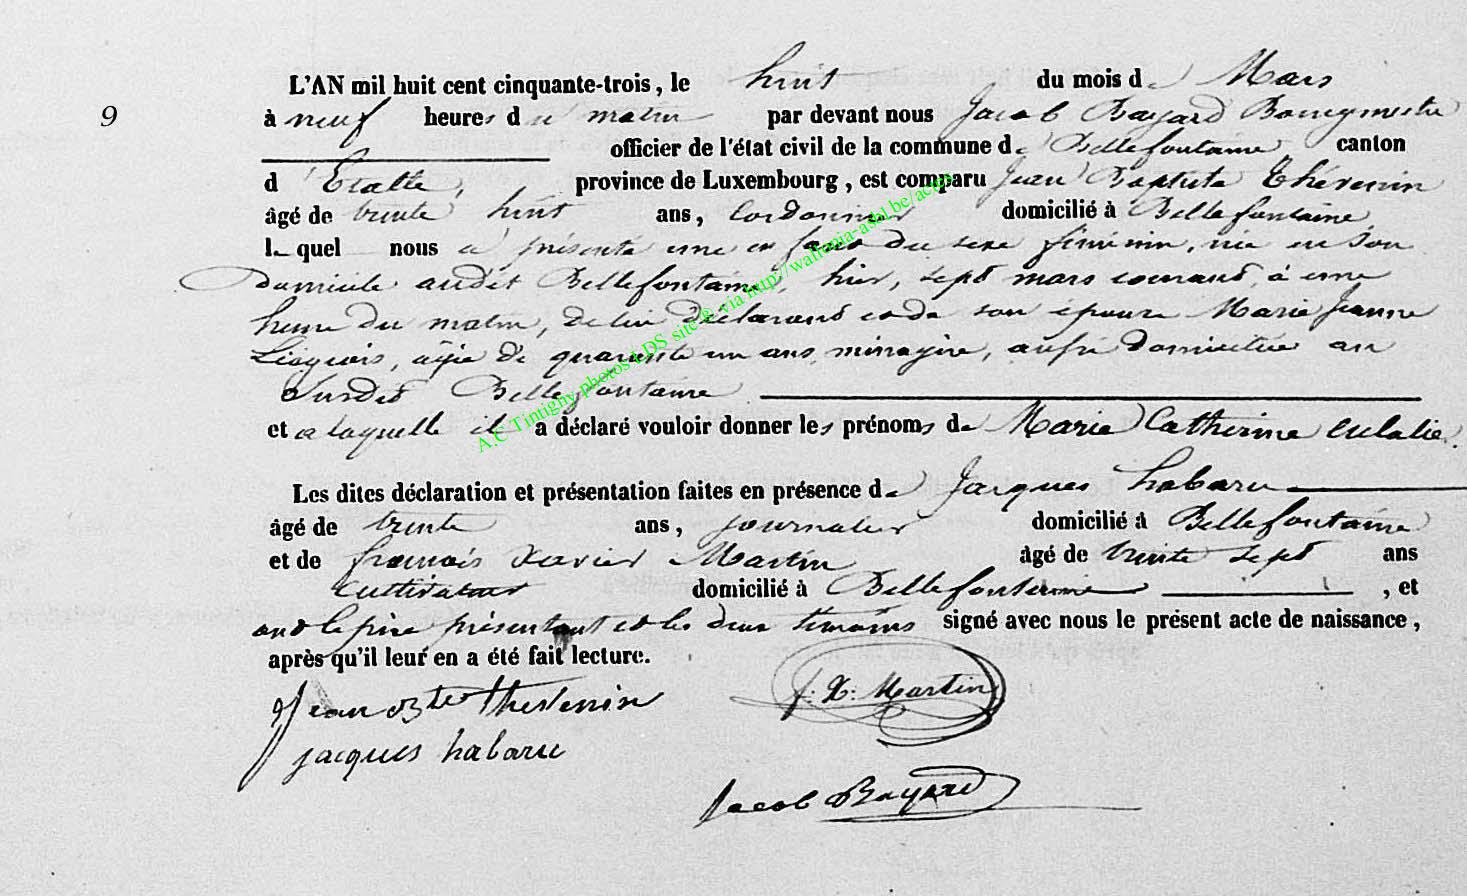 L'AN mil huit cent cinquante-trois, le huit du mois de Mars
9
à neuf heures du matin par devant nous Jacob Bayard Bourgmestre
officier de l'état civil de la commune de Bellefontaine canton
d'Etalle, province de Luxembourg, est comparu Jean Baptiste Thévenin
âgé de trente huit ans, Cordonnier domicilié à Bellefontaine
lequel nous a présenté une enfant du sexe féminin, née en son
Domicile audit Bellefontaine, hier, sept mars courant, à une
heure du matin, de lui déclarant et de son épouse Marie Jeanne
Liégeois, agée de quarante un ans, ménagère, aussi domiciliée au
Susdit Bellefontaine
et a laquelle il a déclaré vouloir donner les prénoms de Marie Catherine Eulalie.
Les dites déclaration et présentation faites en présence de Jacques habaru
âgé de trente ans, journalier domicilié à Bellefontaine
et de francois Xavier Martin âgé de trente sept ans
Cultivateur domicilié à Bellefontaine, et
ont le père présentant et les deux témoins signé avec nous le présent acte de naissance,
après qu'il leur en a été fait lecture.
Jean Bte thevenin
f: X: Martin
jacques habaru
Jacob Bayard
A.C Tintigny photos LDS site & via http://wallonia-asbl.be/actes